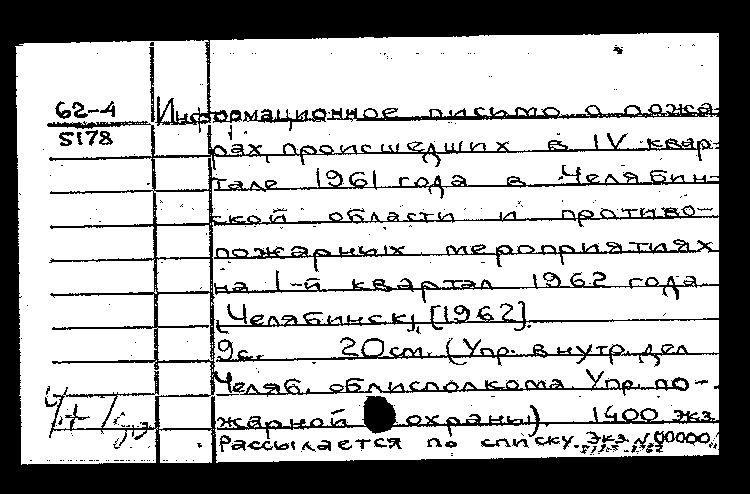 62-4
5178
Информационное письмо о пожа-
рах, происшедших в IV квар-
тале 1961 года в Челябин-
ской области и противо-
пожарных мероприятиях
на I-й квартал 1962 года.
Челябинск, [1962].
9с. 20см. (Упр. внутр. дел
Челяб. облисполкома. Упр. по-
жарной охраны). 1400 экз.
Рассылается по списку. Экз. №00000.